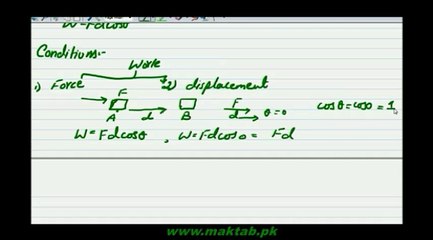 W=Fdcosθ
Conditions:-
Work
1) Force 2) displacement
F F
A d B d θ=0 cosθ=cos0=1
W=Fdcosθ, W=Fdcos0= Fd
www.maktab.pk